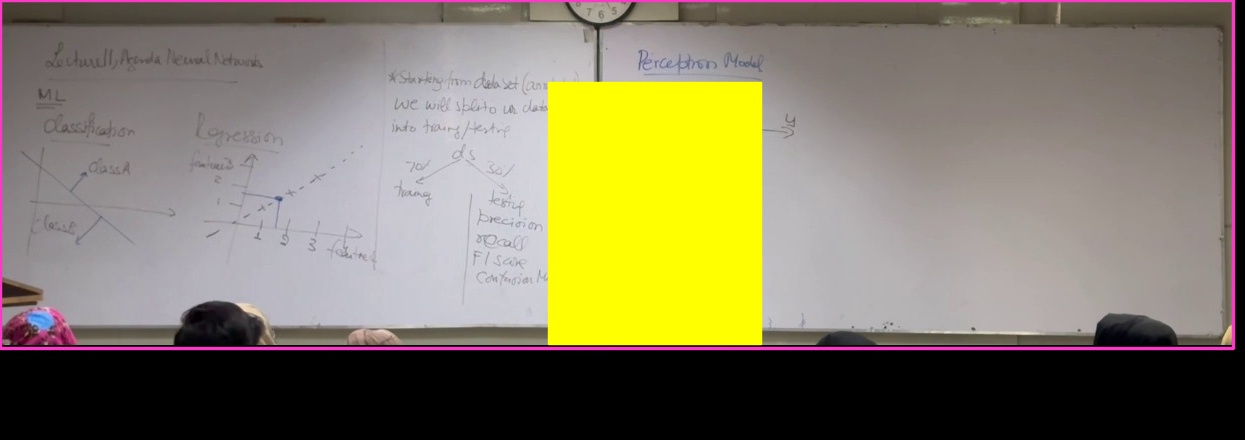 Lecture11, Agenda Neural Networks
ML
Classification
ClassA
ClassB
Regression
2
1
1 2 3
*Starting from dataset
we will split to us data
into traing/testing
ds
70% 30%
traing testing
precision
recall
F1 score
Confusion
Perceptron Model
y
7 6 5